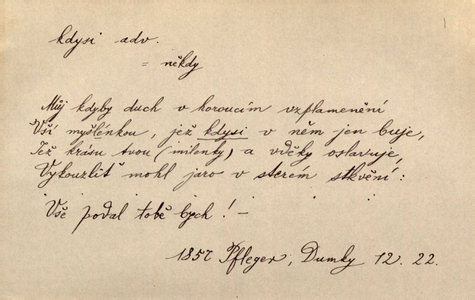 kdysi adv.
= někdy
Můj kdyby duch v horoucím vzplamenění
Vší myšlénkou, jež kdysi v něm jen buje,
Též krásu tvou (milenky) a vděky oslavuje,
Vykouzlit mohl jaro v sterém stkvění:
Vše podal tobě bych! —
1857 Pfleger, Dumky 12. 22.